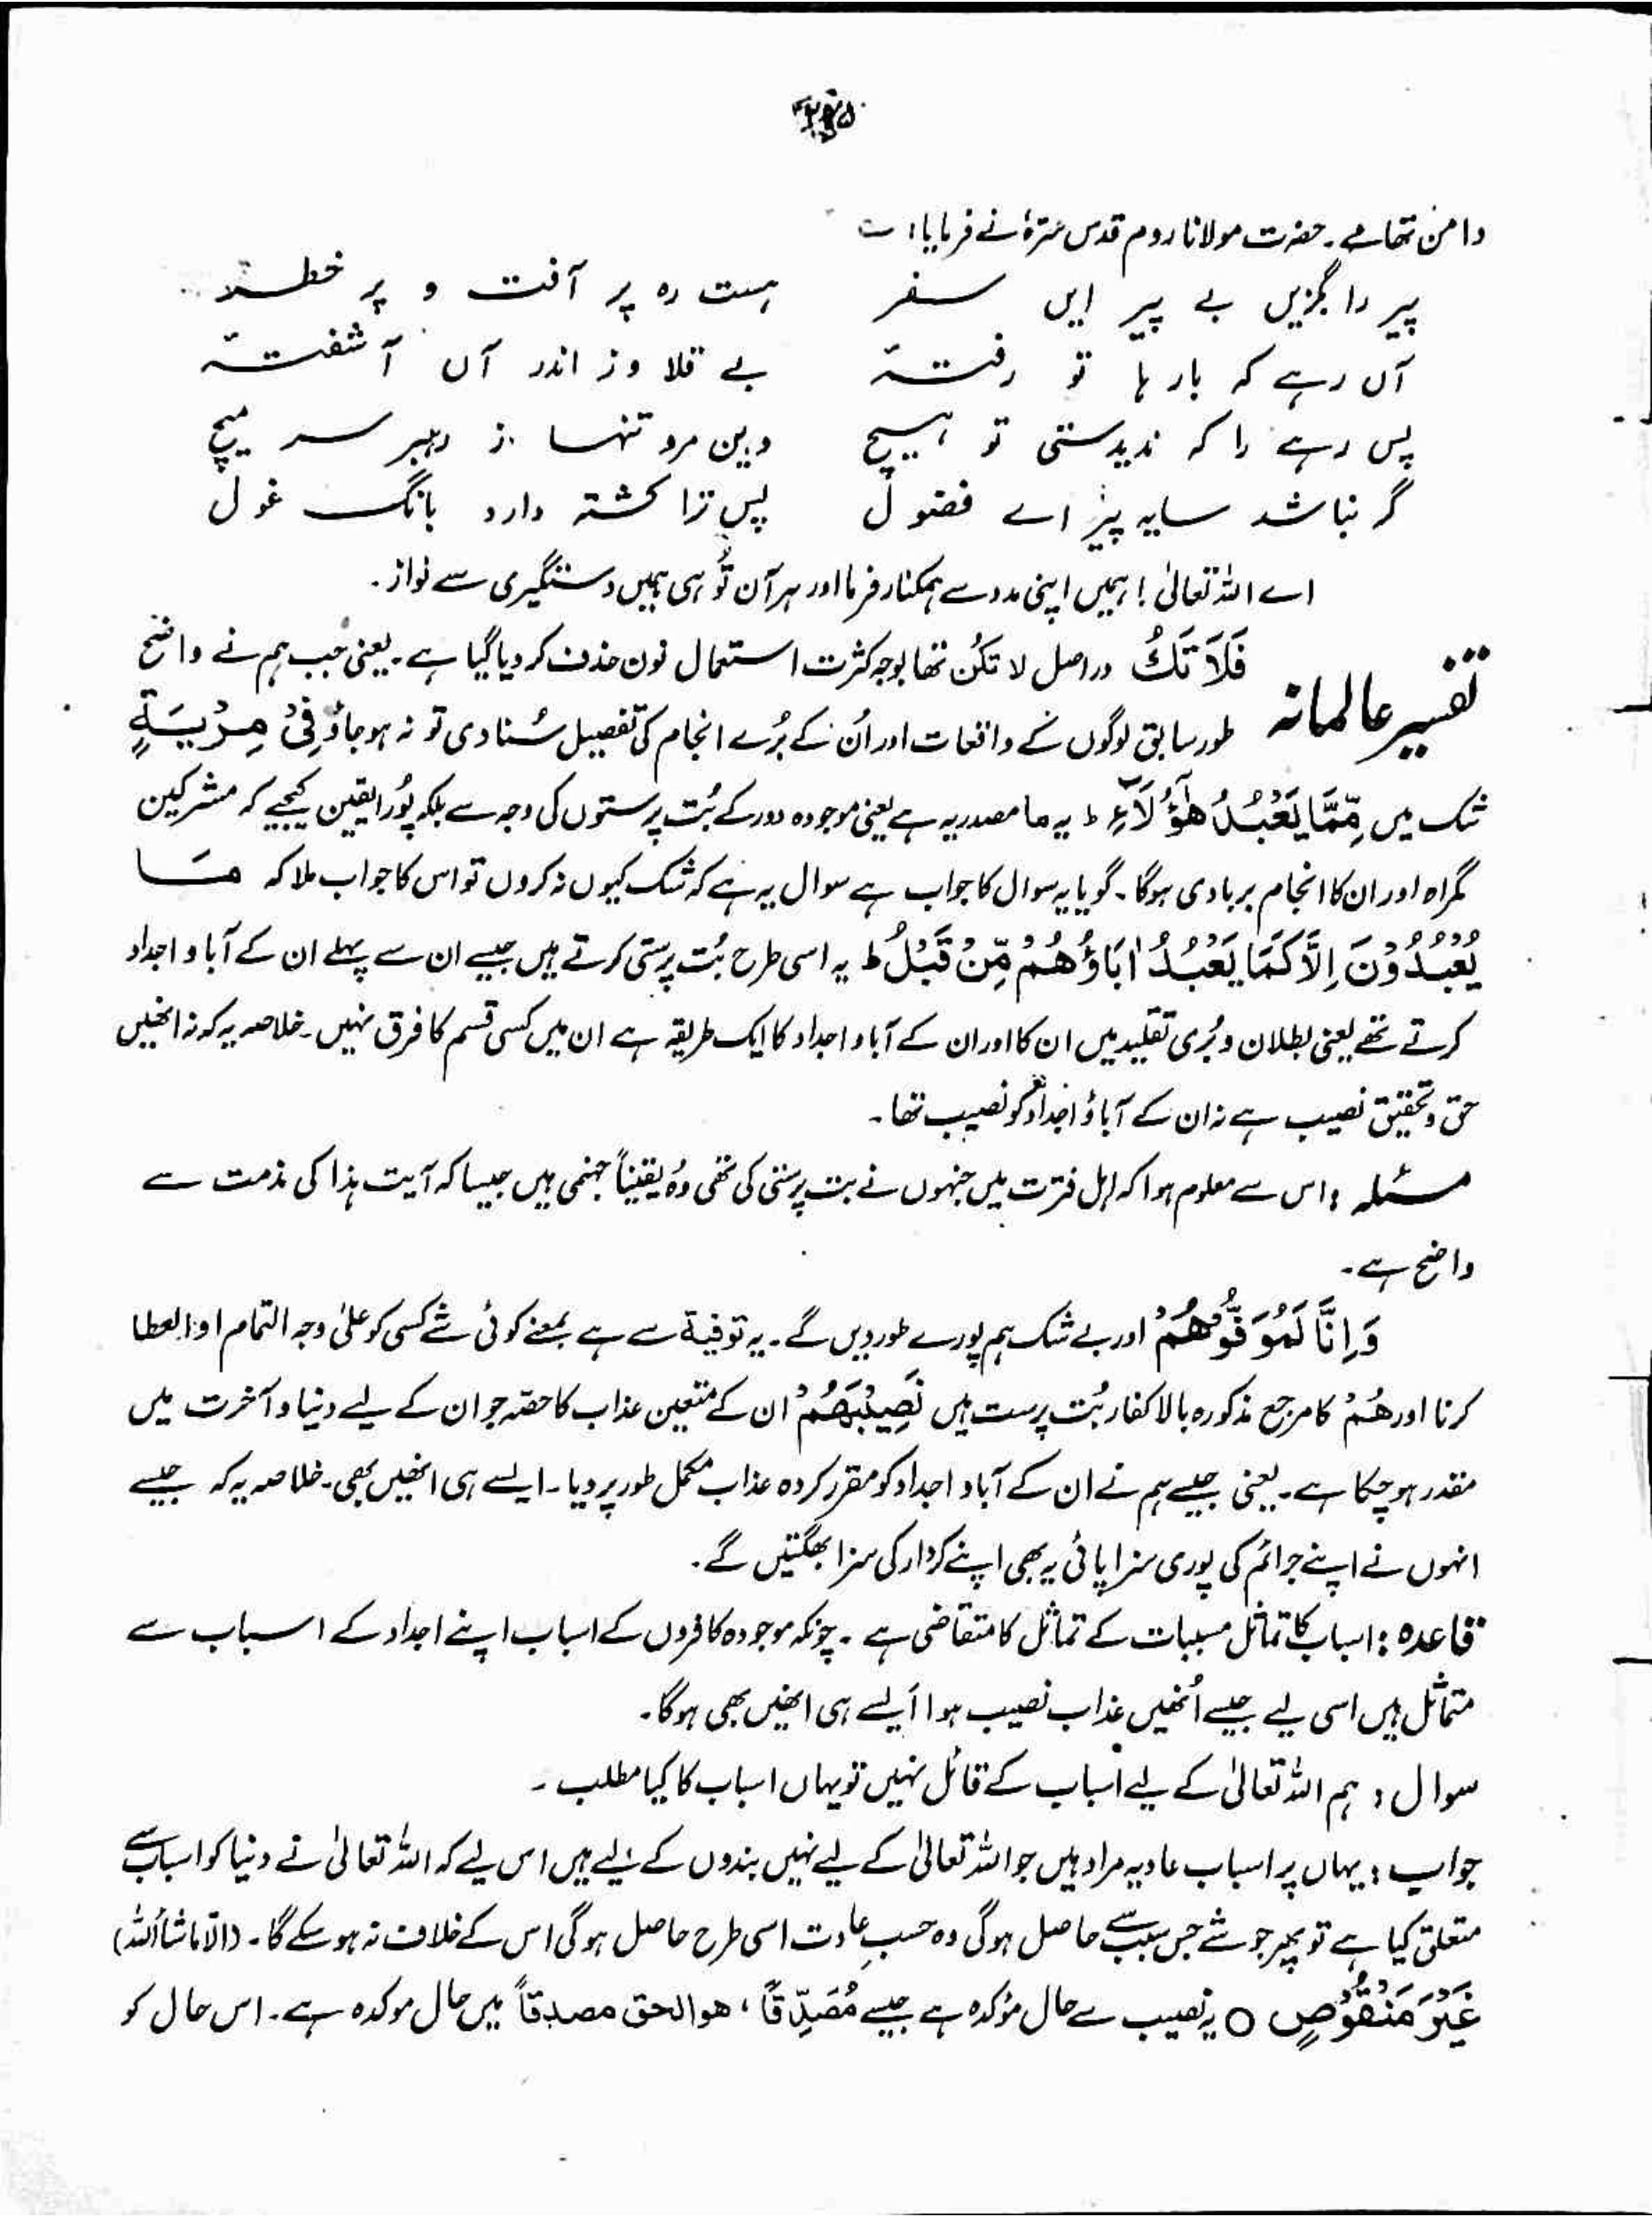 دامن تھامے۔ حضرت مولانا روم قدس سرّہٗ نے فرمایا: ؎
پیر را بگزیں بے پیر ایں سفر ہست رہ پر آفت و پر خطر
آں رہے کہ بارہا تو رفتہٖ بے قلاوز اندر آں آشفتہٖ
پس رہے را کہ ندیدستی تو ہیچ وہین مرو تنہا ز رہبر سر مپیچ
گر نباشد سایہ پیر اے فضول پس ترا گشتہ دارد بانگ غول
اے اللہ تعالیٰ! ہمیں اپنی مدد سے ہمکنار فرما اور ہر آن تُو ہی ہمیں دستگیری سے نواز۔
تفسیر عالمانہ فَلَا تَكُ دراصل لا تکُن تھا بوجہ کثرت استعمال نون حذف کر دیا گیا ہے۔ یعنی جب ہم نے واضح
طور سابق لوگوں کے واقعات اور اُن کے بُرے انجام کی تفصیل سُنا دی تو نہ ہو جاؤ فِیْ مِرْیَةٍ
شک میں مِّمَّا یَعْبُدُ هٰۤؤُلَآءِ ط یہ ما مصدریہ ہے یعنی موجودہ دور کے بُت پرستوں کی وجہ سے بلکہ پُورا یقین کیجیے کہ مشرکین
گمراہ اور ان کا انجام بربادی ہوگا۔ گویا یہ سوال کا جواب ہے سوال یہ ہے کہ شک کیوں نہ کروں تو اس کا جواب ملا کہ مَا
یَعْبُدُوْنَ اِلَّا كَمَا یَعْبُدُ اٰبَاؤُهُمْ مِّنْ قَبْلُ ط یہ اسی طرح بُت پرستی کرتے ہیں جیسے ان سے پہلے ان کے آباو اجداد
کرتے تھے یعنی بطلان و بُری تقلید میں ان کا اور ان کے آباو اجداد کا ایک طریقہ ہے ان میں کسی قسم کا فرق نہیں۔ خلاصہ یہ کہ نہ انھیں
حق و تحقیق نصیب ہے نہ ان کے آباؤ اجداد کو نصیب تھا۔
مسئلہ : اس سے معلوم ہوا کہ اہل فترت میں جنہوں نے بت پرستی کی تھی وُہ یقیناً جہنمی ہیں جیسا کہ آیت ہذا کی مذمت سے
واضح ہے۔
وَاِنَّا لَمُوَفُّوْهُمْ اور بے شک ہم پورے طور دیں گے۔ یہ توفیۃ سے ہے بمعنے کوئی شے کسی کو علیٰ وجہ التمام او العطا
کرنا اور هُمْ کا مرجع مذکورہ بالا کفار بُت پرست ہیں نَصِیْبَهُمْ ان کے متعین عذاب کا حصہ جو ان کے لیے دنیا و آخرت میں
مقدر ہو چکا ہے۔ یعنی جیسے ہم نے ان کے آباو اجداد کو مقرر کردہ عذاب مکمل طور پر دیا۔ ایسے ہی انھیں بھی۔ خلاصہ یہ کہ جیسے
انہوں نے اپنے جرائم کی پوری سزا پائی یہ بھی اپنے کردار کی سزا بھگتیں گے۔
قاعدہ : اسباب کا تماثل مسببات کے تماثل کا متقاضی ہے۔ چونکہ موجودہ کافروں کے اسباب اپنے اجداد کے اسباب سے
متماثل ہیں اسی لیے جیسے اُنھیں عذاب نصیب ہوا ایسے ہی انھیں بھی ہوگا۔
سوال : ہم اللہ تعالیٰ کے لیے اسباب کے قائل نہیں تو یہاں اسباب کا کیا مطلب۔
جواب : یہاں پر اسباب عادیہ مراد ہیں جو اللہ تعالیٰ کے لیے نہیں بندوں کے لیے ہیں اس لیے کہ اللہ تعالیٰ نے دنیا کو اسباب سے
متعلق کیا ہے تو پھر جو شے جس سبب سے حاصل ہوگی وہ حسبِ عادت اسی طرح حاصل ہوگی اس کے خلاف نہ ہو سکے گا۔ (الا ماشاء اللہ)
غَیْرَ مَنْقُوْصٍ ○ یہ نصیب سے حال مؤکدہ ہے جیسے مُصَدِّقًا، هو الحق مصدقاً میں حال موکدہ ہے۔ اس حال کو